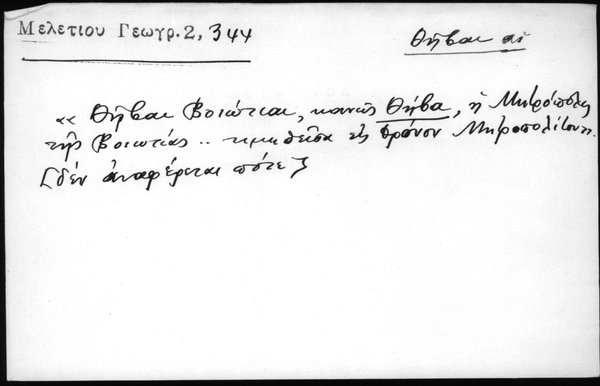 Μελετίου Γεωγρ.2, 344
Θῆβαι αἱ
«Θῆβαι Βοιώτιαι, κοινῶς Θήβα, ἡ Μητρόπολις
τῆς Βοιωτίας .. τιμηθεῖσα εἰς θρόνον Μητροπολίτου».
[δέν ἀναφέρεται πότε]